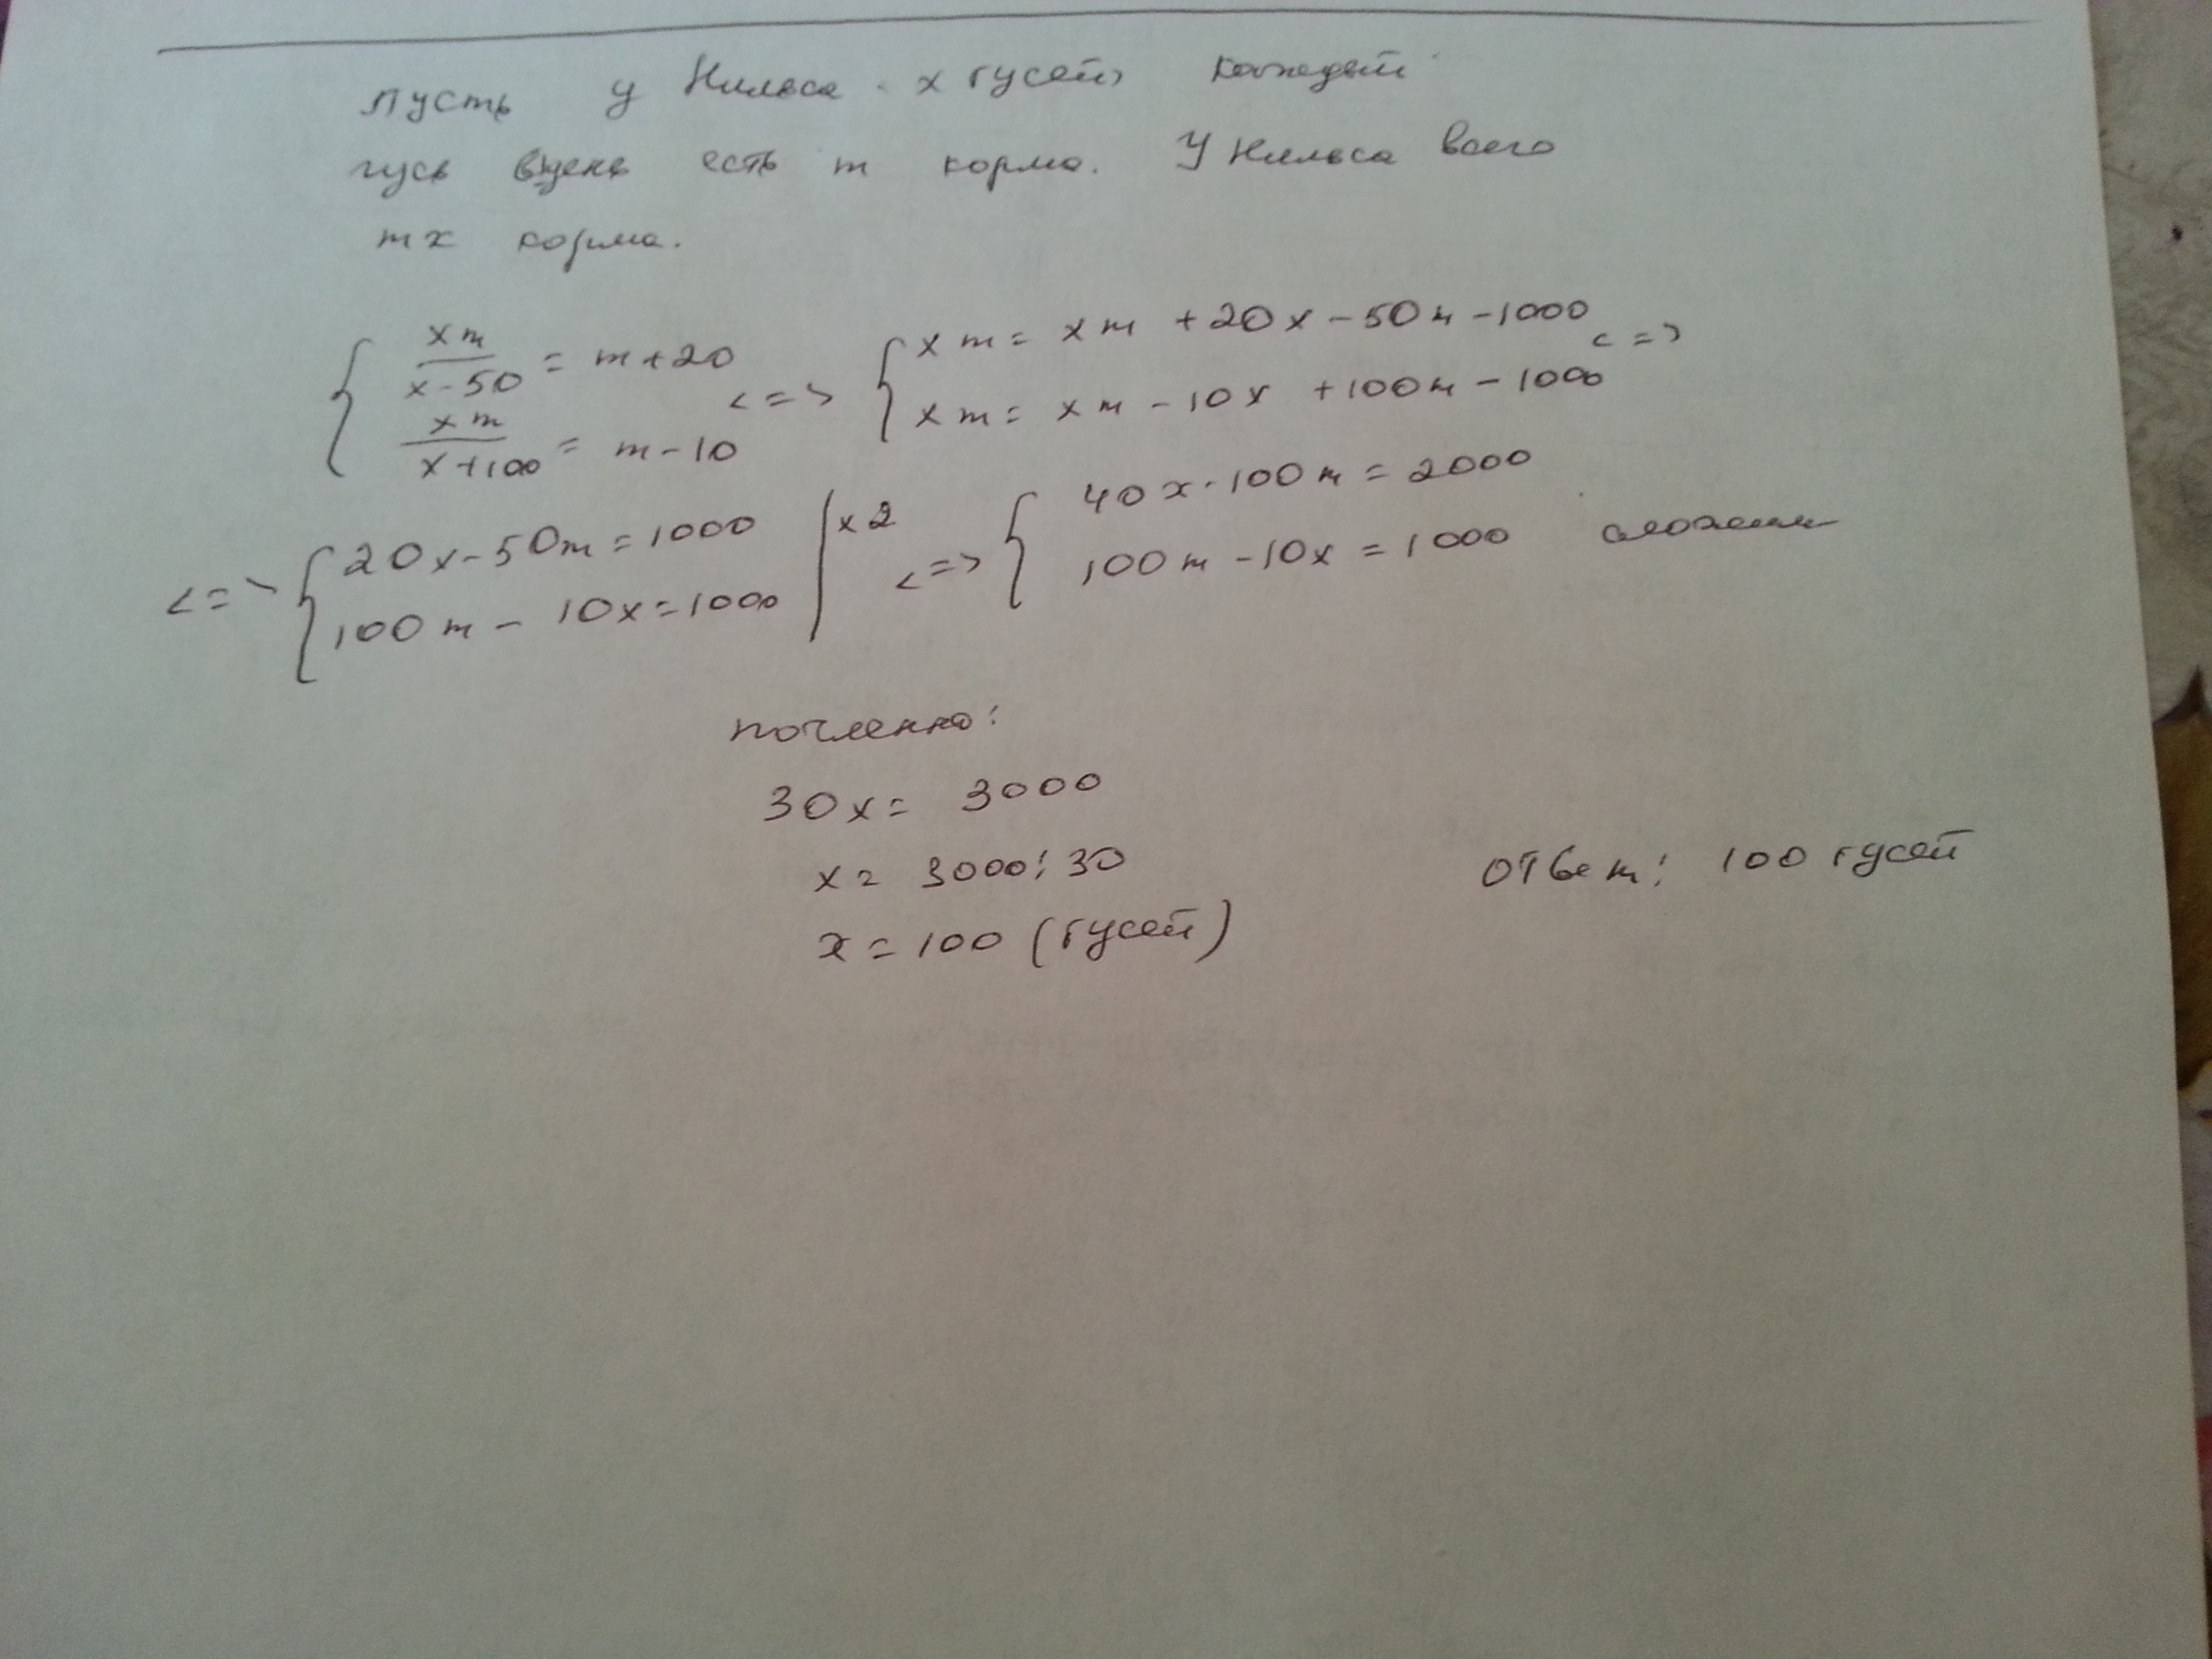 Пусть у Нильса x гусей, каждый
гусь в день есть m корма. У Нильса всего
mx корма.
{ xm/(x-50) = m+20 <=> { xm = xm + 20x - 50m - 1000 <=>
{ xm/(x+100) = m-10 { xm = xm - 10x + 100m - 1000
<=> { 20x-50m=1000 | x2 <=> { 40x-100m = 2000
{ 100m - 10x=1000 | { 100m - 10x = 1000 сложим
почленно:
30x = 3000
x = 3000:30
x = 100 (гусей)
Ответ: 100 гусей